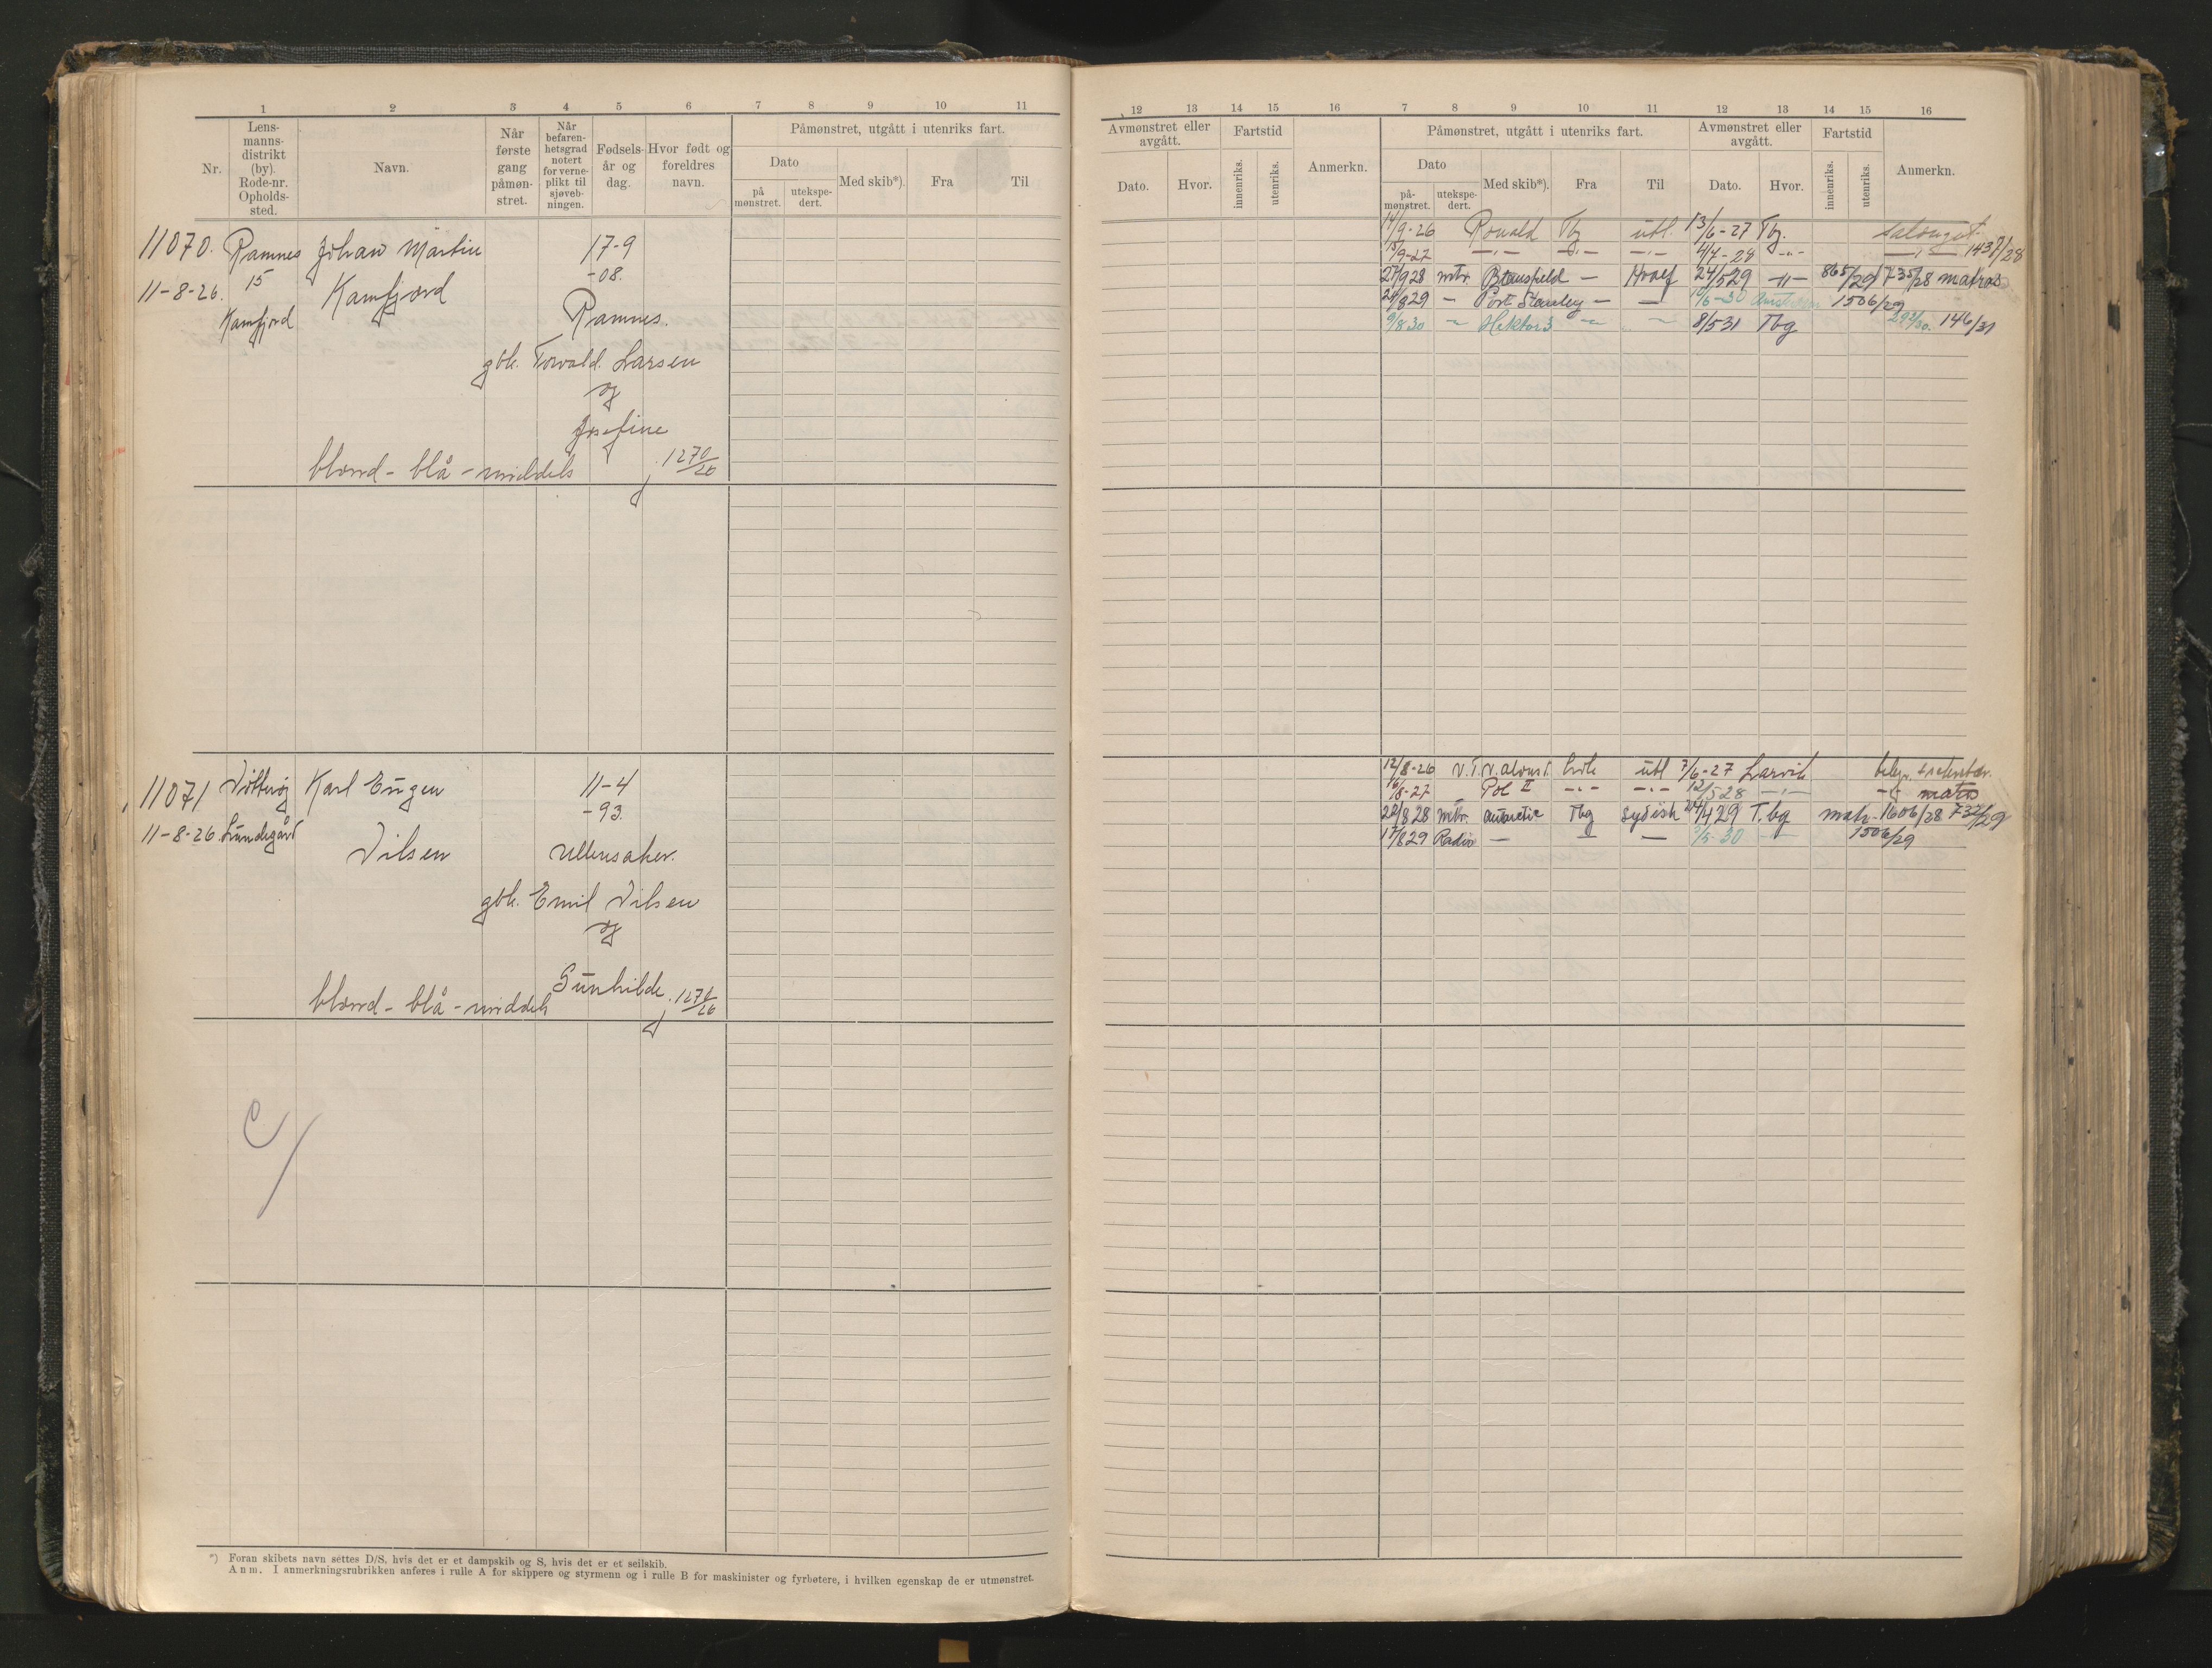 1 2 3 4 5 6 7 8 9 10 11
Nr.
Lens-
manns-
distrikt
(by).
Rode-nr.
Opholds-
sted.
Navn.
Når
første
gang
påmøn-
stret.
Når
befaren-
hetsgrad
notert
for verne-
plikt til
sjøveb-
ningen.
Fødsels-
år og
dag.
Hvor født og
foreldres
navn.
Påmønstret, utgått i utenriks fart.
Dato
på
mønstret.
utekspe-
dert.
Med skib*).
Fra
Til
11070. Ramnes Johan Martin 17-9
11-8-26. 15 Kamfjord -08.
Kamfjord Ramnes.
gbk. Torvald Larsen
og
Josefine
blond - blå - middels j. 1270/26
11071 Karl Eugen 11-4
11-8-26 Lundegård -93.
Vilsen Ullensaker.
gbk. Emil Vilsen
og
Gunhilde
blond - blå - middels j. 1271/26
*) Foran skibets navn settes D/S, hvis det er et dampskib og S, hvis det er et seilskib.
Anm. I anmerkningsrubrikken anføres i rulle A for skippere og styrmenn og i rulle B for maskinister og fyrbøtere, i hvilken egenskap de er utmønstret.
12 13 14 15 16 7 8 9 10 11 12 13 14 15 16
Avmønstret eller
avgått.
Dato.
Hvor.
Fartstid
innenriks.
utenriks.
Anmerkn.
Påmønstret, utgått i utenriks fart.
Dato
på-
mønstret.
utekspe-
dert.
Med skib*).
Fra
Til
Avmønstret eller
avgått.
Dato.
Hvor.
Fartstid
innenriks.
utenriks.
Anmerkn.
14/9-26 Ronald Tbg utl. 13/6-27 Tbg. salongst.
15/9-27 -"- -"- -"- 4/7-28 -"- -"- 1437/28
27/9 28 mtr. Bransfield - Hvalf 24/5 29 -"- 865/29 1735/28 matros
24/8 29 - Port Stanley - - 10/6-30 1506/29
9/8 30 - Hektor 3 - - 8/5 31 Tbg 292/30. 146/31
12/8-26 utl 7/6-27 Larvik
16/8-27 Pol II -"- -"- 12/5 28 -"- -"- matros
22/8 28 mtr. Antarctic Tbg Sydish 24/4 29 T.bg matr. 1606/28 732/29
17/8 29 Radio - - - 3/5-30 - 1506/29